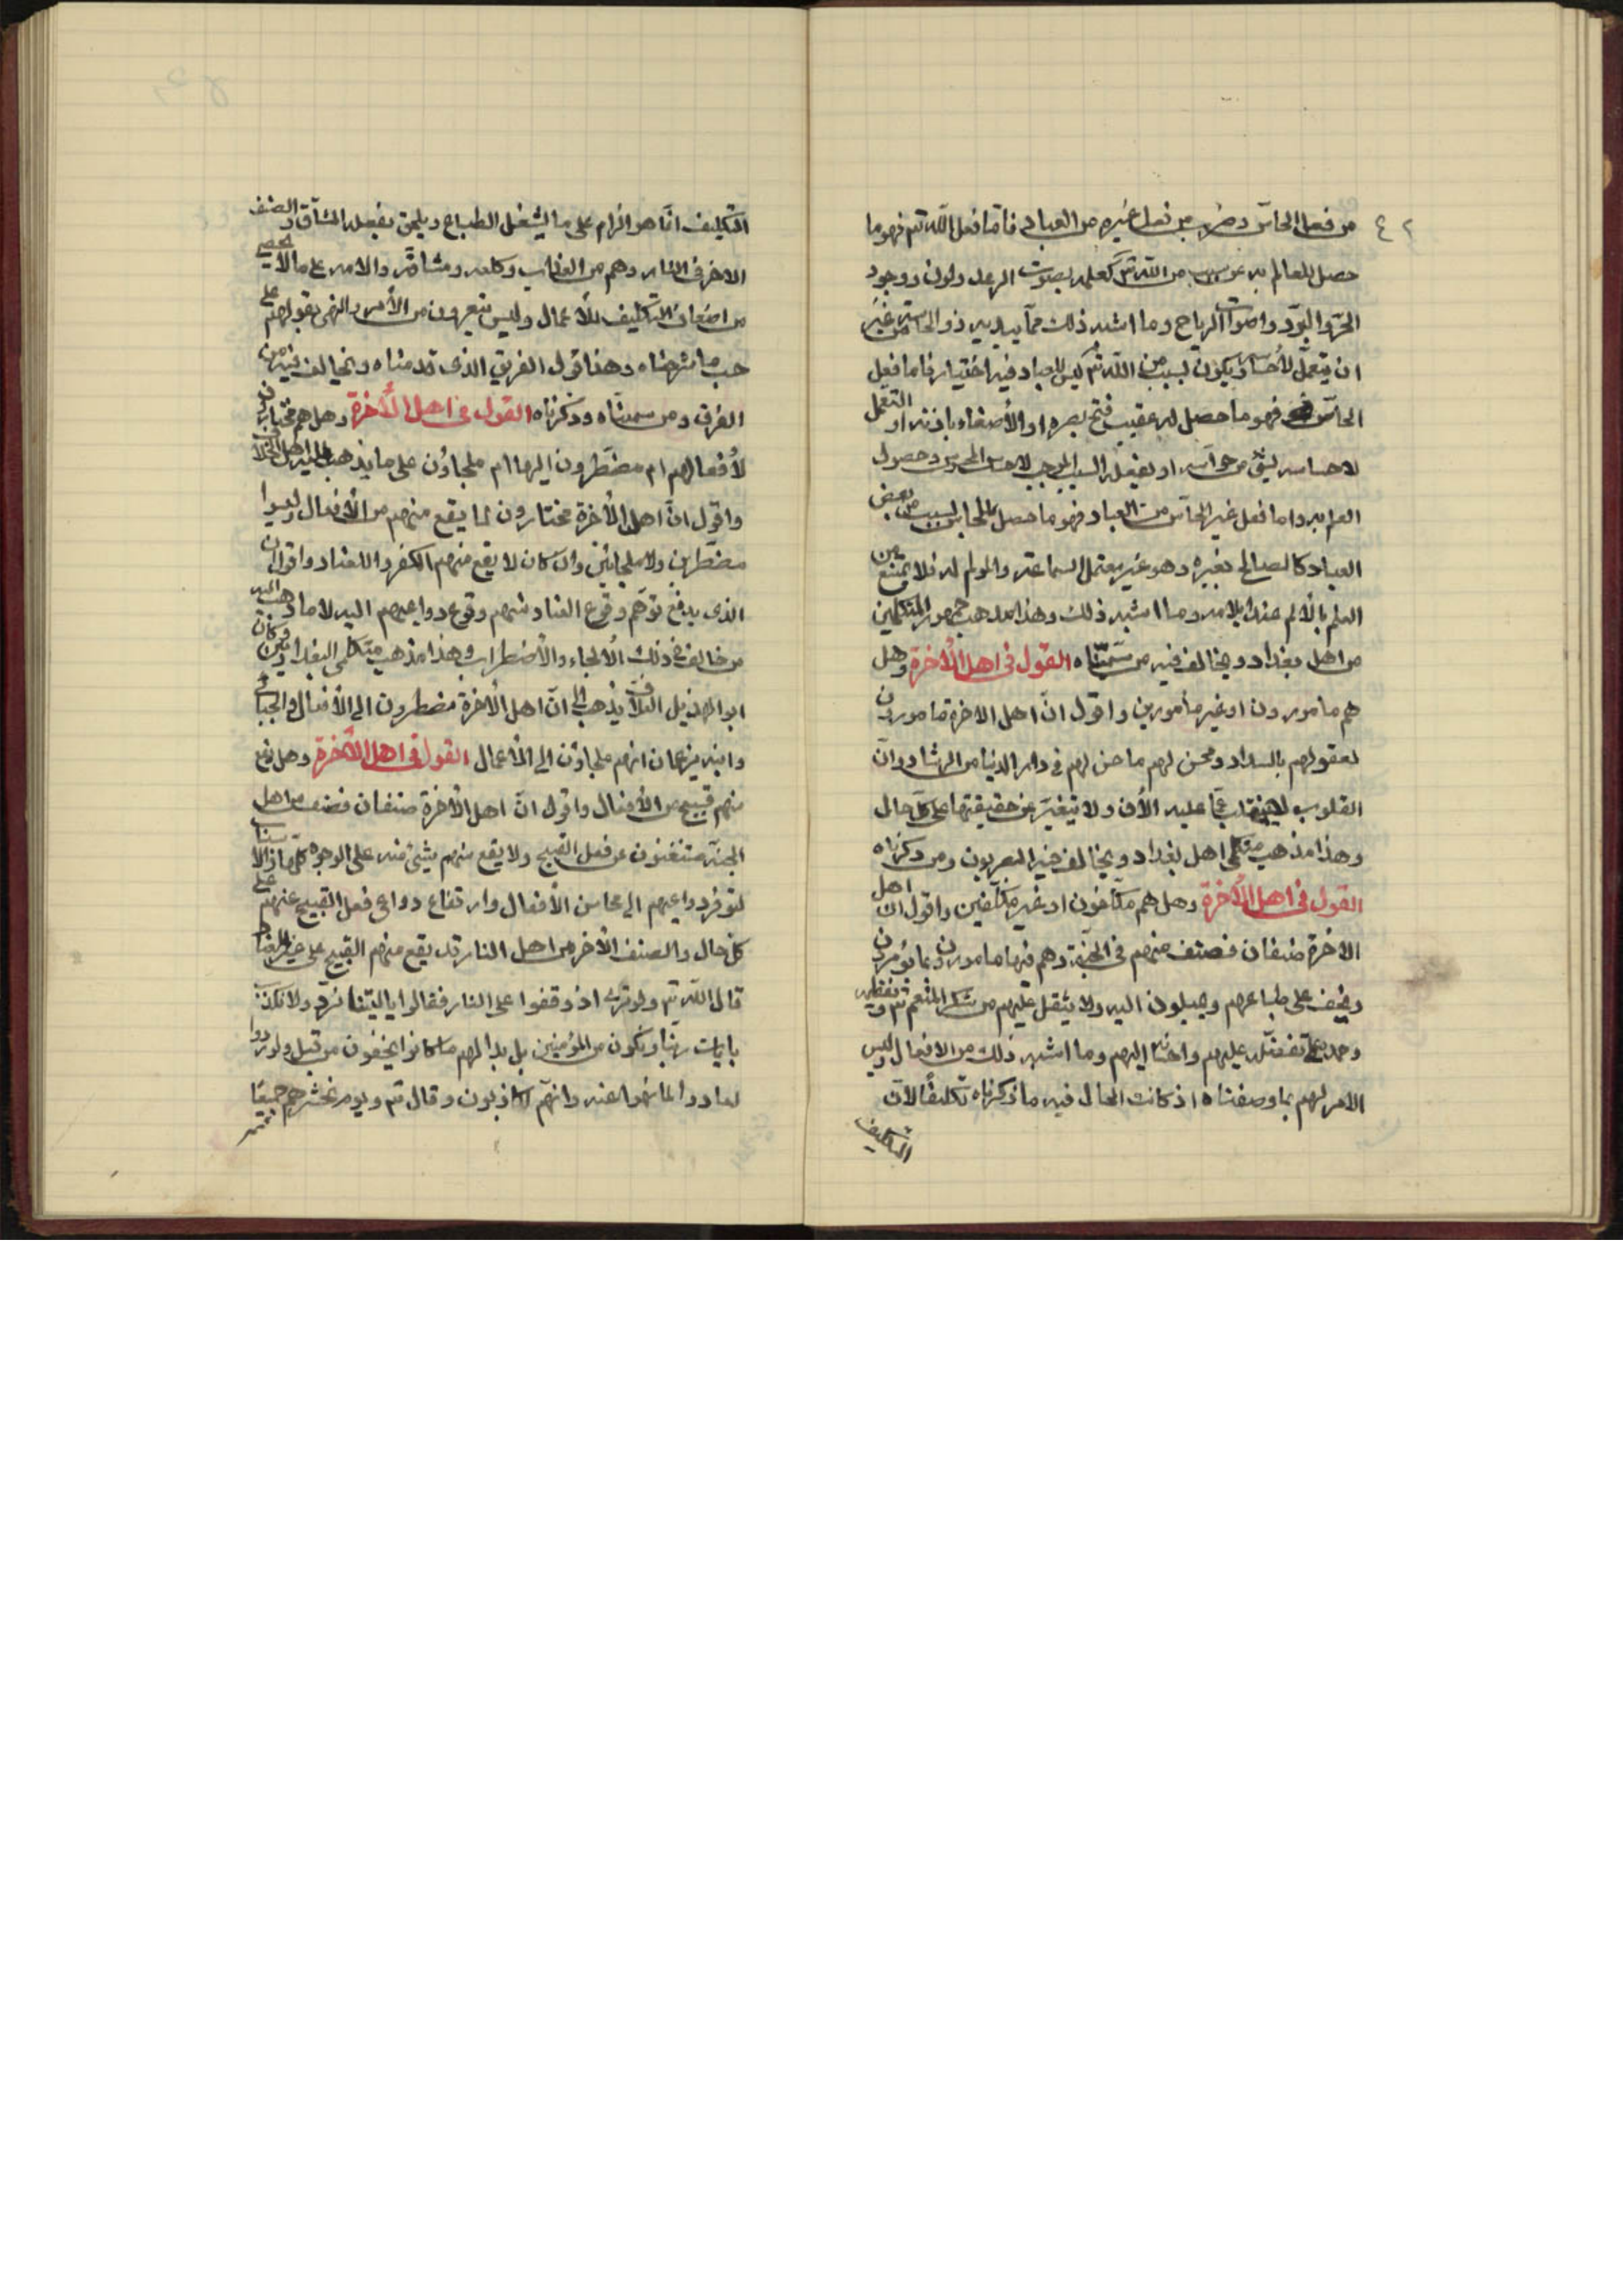 ٤٢
من فعل الحاس وضرب من فعل غيره من العباد فاما فعل الله تم فهو ما
حصل للعالم به عن سبب من الله تم كعلمه بصوت الرعد ولون ووجود
الحر والبرد واصوات الرياح وما اشبه ذلك مما يبديه ذو الحاسة من غير
ان يتعمل لاحساسه ويكون بسبب من الله تم ليس للعباد فيه اختيار فاما فعل
الحاس فهو ما حصل له عقيب فتح بصره او الأصغاء باذنه او التعمل
لاحساسه بشئ من حواسه او بفعله السبب الموجب لاحساس المحسوس وحصول
العلم به واما فعل غير الحاس من العباد فهو ما حصل للحاس بسبب من بعض
العباد كالصائح بغيره وهو غير متعمل لسماعه والمولم له فلا يمتنع من
العلم بالألم عند ايلامه وما اشبه ذلك وهذا مذهب جمهور المتكلمين
من اهل بغداد ويخالف فيه من سمّيناه القول في اهل الأخرة وهل
هم مامورون او غير مأمورين واقول انّ اهل الاخرة مامورون
بعقولهم بالسداد ومحسن لهم ما حسن لهم في دار الدنيا من الرشاد وانّ
القلوب لا ينقلب عمّا عليه الأن ولا تتغيّر عن حقيقتها على كل حال
وهذا مذهب متكلمي اهل بغداد ويخالف فيه البصريون ومن ذكرناه
القول في اهل الأخرة وهل هم مكلّفون او غير مكلّفين واقول ان اهل
الاخرة صنفان فصنف منهم في الجنّة وهم فيها مامورون بما يؤثرون
ويخف على طباعهم ويميلون اليه ولا يثقل عليهم من شكر المنعم تم وتعظيمه
وحمده على تفضّله عليهم واحسانه اليهم وما اشبه ذلك من الافعال وليس
الامر لهم بما وصفناه اذ كانت الحال فيه ما ذكرناه تكليفًا لانّ
التكليف
التكليف انّما هو الزام على ما يثقل الطباع ويلحق بفعله المشاقّ والصنف
الاخر في النار وهم من العذاب وكلفه ومشاقّه والامه على ما لا يحصى
من اصناف التكليف للأعمال وليس يتعرون من الأمر والنهي بعقولهم على
حسب ما شرحناه وهذا قول الفريق الذي قدمناه ويخالف فيه من
الفرق ومن سمّيناه وذكرناه القول في اهل الأخرة وهل هم مختارون
لأفعالهم ام مضطّرون اليها ام ملجاؤن على ما يذهب اليه اهل الخلاف
واقول انّ اهل الأخرة مختارون لما يقع منهم من الأفعال وليسوا
مضطّرين ولا ملجائين وان كان لا يقع منهم الكفر والعناد واقول ان
الذي يدفع توهّم وقوع الفساد منهم وقوع دواعيهم اليه لا ما ذهب اليه
من خالف في ذلك الألجاء والأضطرار وهذا مذهب متكلمي البغداديين وكان
ابو الهذيل العلاف يذهب الى انّ اهل الأخرة مضطرون الى الأفعال والجبائي
وابنه يزعمان انهم ملجاؤن الى الأعمال القول في اهل الأخرة وهل يقع
منهم قبيح من الأفعال واقول انّ اهل الأخرة صنفان فصنف من اهل
الجنة مستغنون عن فعل القبيح ولا يقع منهم شيئ منه على الوجوه كلّها
لتوفر دواعيهم الى محاسن الأفعال وارتفاع دواعى فعل القبيح عنهم على
كل حال والصنف الأخر من اهل النار قد يقع منهم القبيح على غير العناد
قال الله تم ولو ترى اذ وقفوا على النار فقالوا يا ليتنا نردّ ولا نكذّب
بايات ربّنا ونكون من المؤمنين بل بدا لهم ما كانوا يخفون من قبل ولو ردوا
لعادوا لما نهوا عنه وانهّم لكاذبون وقال تم ويوم نحشرهم جميعًا